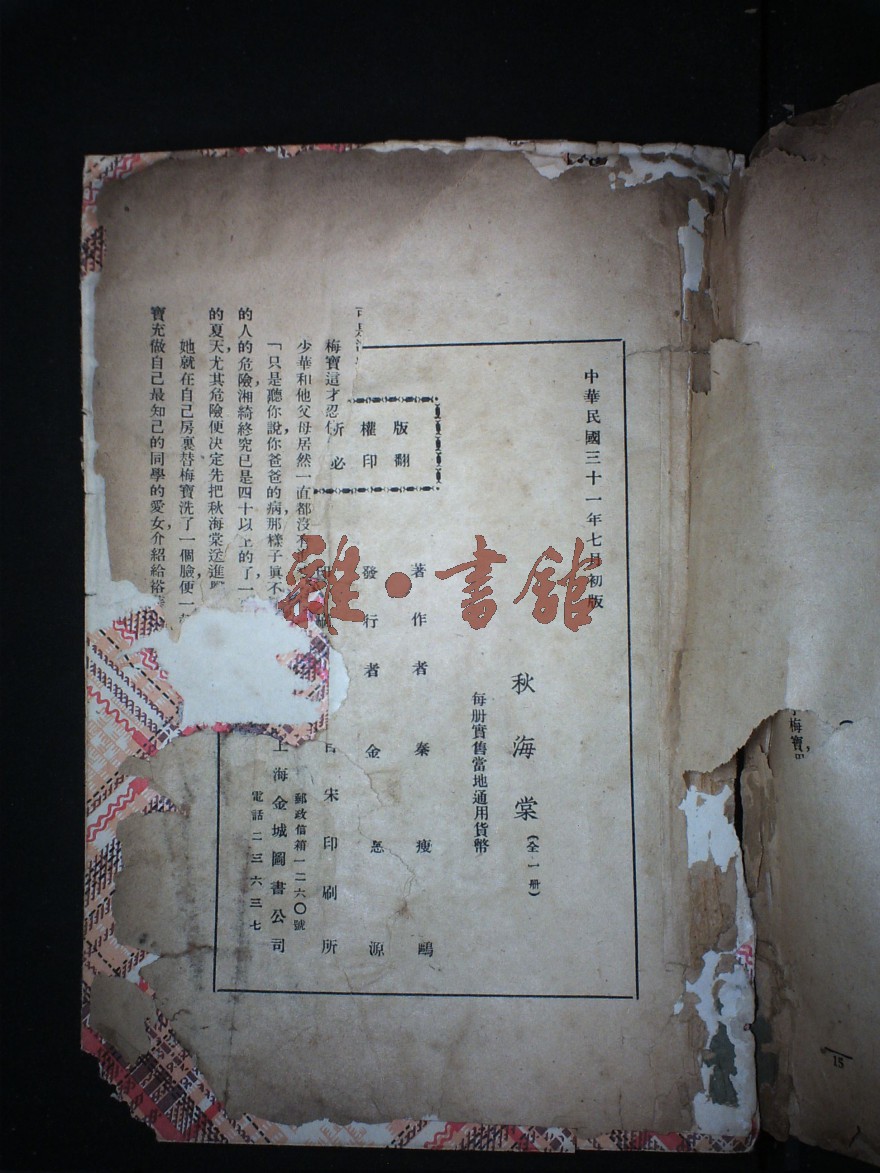 中華民國三十一年七月初版
秋海棠(全一冊)
每册實售當地通用貨幣
著作者秦瘦鷗
發行者金
源
宋印刷所
郵政信箱一二六〇號
上海金城圖書公司
電話二三六三七
版權所
翻印必
梅寶這才忍
少華和他父母居然一直都沒有
「只是聽你說,你爸爸的病那樣子眞不
的人的危險,湘綺終究已是四十以上的了,一
的夏天,尤其危險,便決定先把秋海棠送進
她就在自己房裏替梅寶洗了一個臉,便一
寶充做自己最知己的同學的愛女,介紹給裕
梅寶,
15
雜·書館